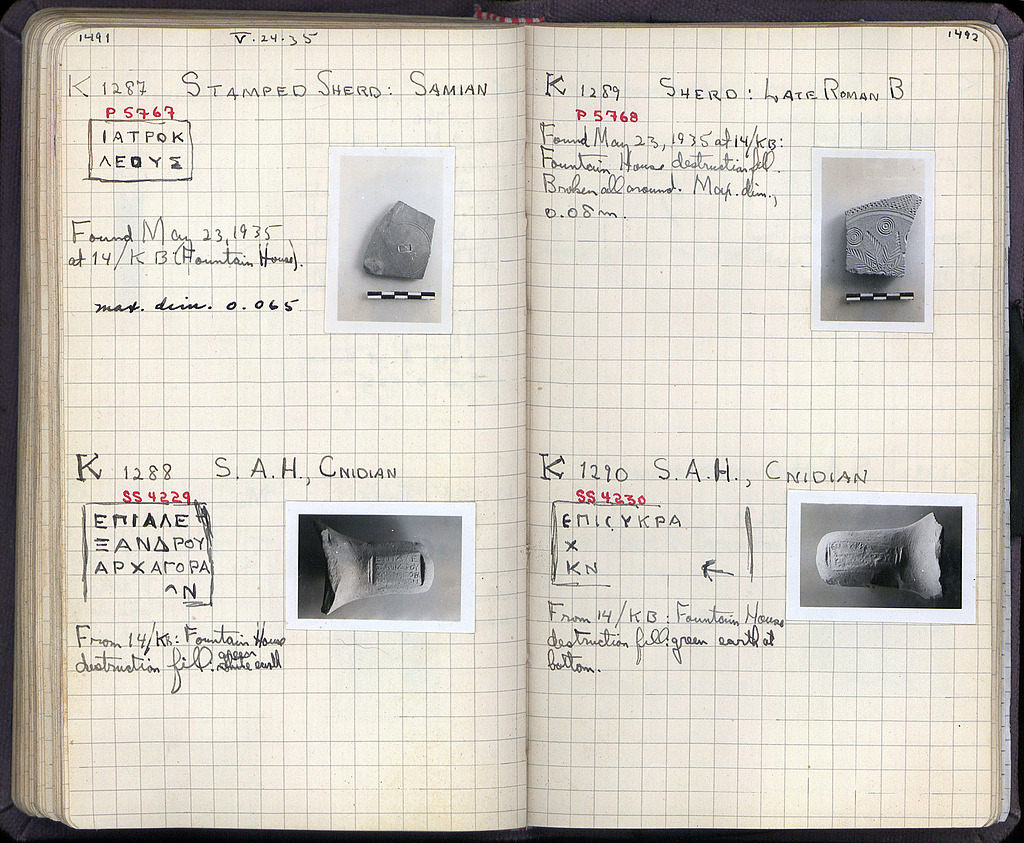 1491 V·24·35
K 1287 STAMPED SHERD: SAMIAN
P 5767
ΙΑΤΡΟΚ
ΛΕΟΥΣ
Found May 23, 1935
at 14/KB (Fountain House).
max. dim. 0.065
K 1288 S. A. H., CNIDIAN
SS 4229
ΕΠΙΑΛΕ
ΞΑΝΔΡΟΥ
ΑΡΧΑΓΟΡΑ
Ν
From 14/KB: Fountain House
destruction fill: green
earth
1492
K 1289 SHERD: LATE ROMAN B
P 5768
Found May 23, 1935 at 14/KB:
Fountain House destruction fill.
Broken all around. Max. dim.,
0.08m.
K 1290 S. A. H., CNIDIAN
SS 4230
ΕΠΙΣΥΚΡΑ
Χ
ΚΝ ←
From 14/KB: Fountain House
destruction fill: green earth at
bottom.